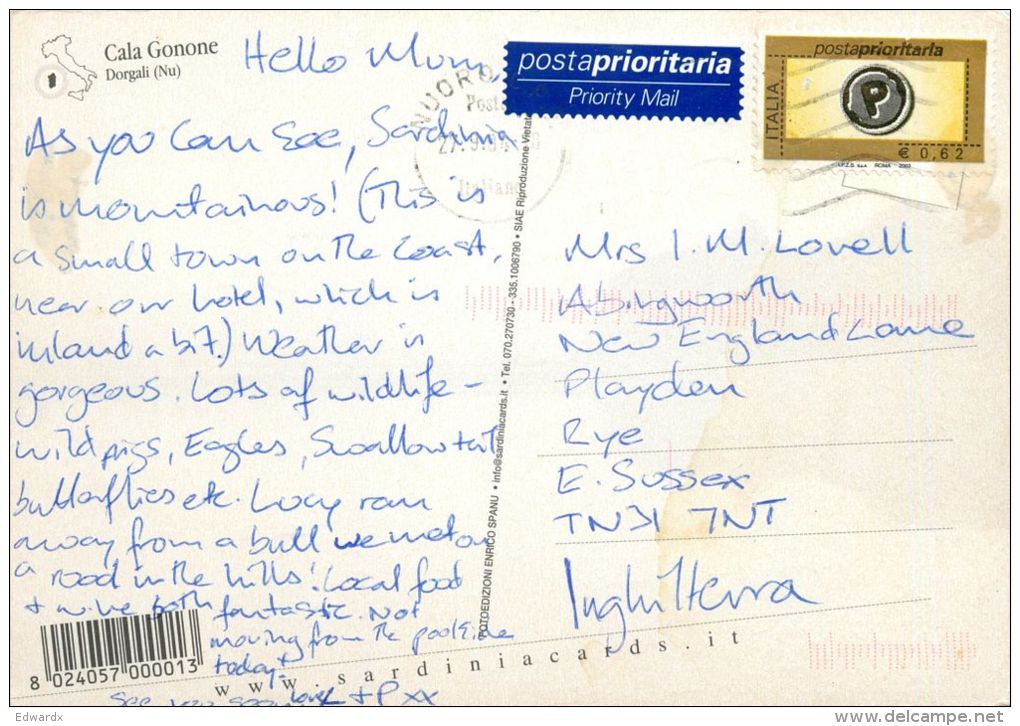 Cala Gonone
Dorgali (Nu)
Hello Mum,
As you can see, Sardinia
is mountainous! (This is
a small town on the coast,
near our hotel, which is
inland a bit.) Weather is
gorgeous. Lots of wildlife –
wild pigs, Eagles, Swallowtail
butterflies etc. Lucy ran
away from a bull we met on
a road in the hills! Local food
+ wine both fantastic. Not
moving from the poolside
today!
See you soon love L + P xx
8 024057 000013
www.sardiniacards.it
FOTOEDIZIONI ENRICO SPANU • info@sardiniacards.it • Tel. 070.270730 - 335.1006790 • SIAE Riproduzione Vietata
NUORO
Poste
Italiane
postaprioritaria
Priority Mail
postaprioritaria
ITALIA
P
€ 0,62
I.P.Z.S. S.p.A. ROMA 2002
Mrs I. M. Lovell
Abingworth
New England Lane
Playden
Rye
E. Sussex
TN31 7NT
Inghilterra
Edwardx
www.delcampe.net